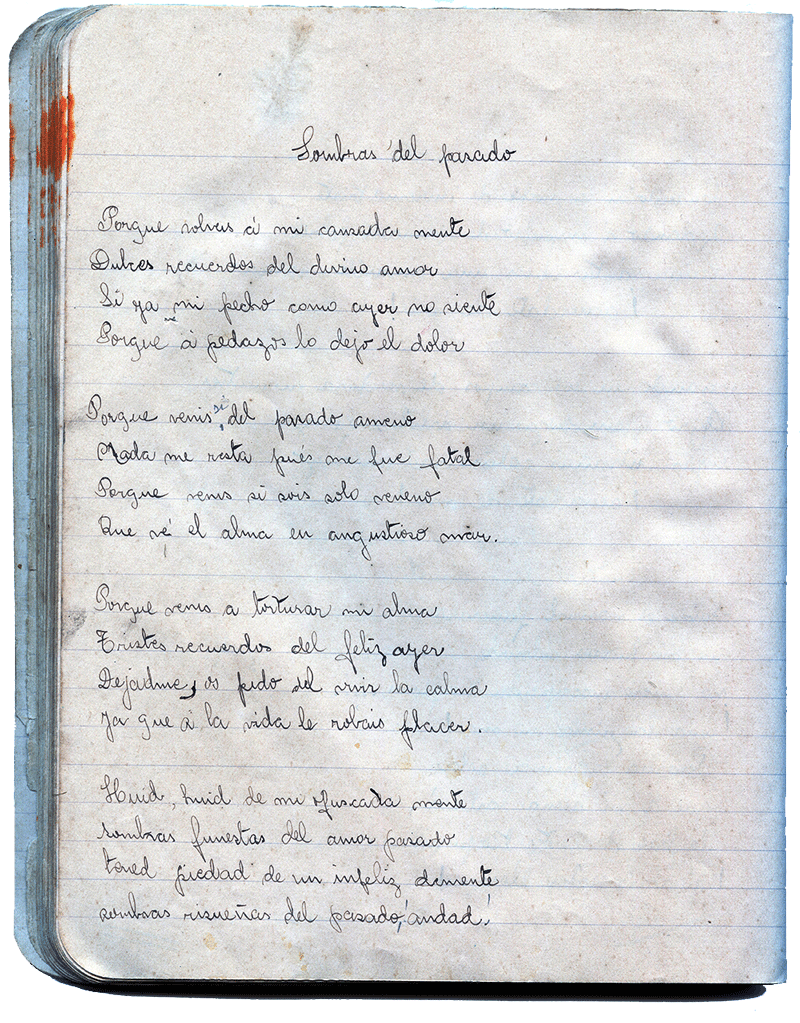 Sombras del pasado
Porque volveis á mi cansada mente
Dulces recuerdos del divino amor
Si ya mi pecho como ayer no siente
Porque á pedazos lo dejo el dolor
Porque venis si, del pasado ameno
Nada me resta pués me fue fatal
Porque venis si sois solo veneno
Que vé el alma en angustioso mar.
Porque venis a torturar mi alma
Tristes recuerdos del feliz ayer
Dejadme, os pido del vivir la calma
Ya que á la vida le robais placer.
Huid, huid de mi ofuscada mente
sombras funestas del amor pasado
tened piedad de un infeliz demente
sombras risueñas del pasado, ¡andad!